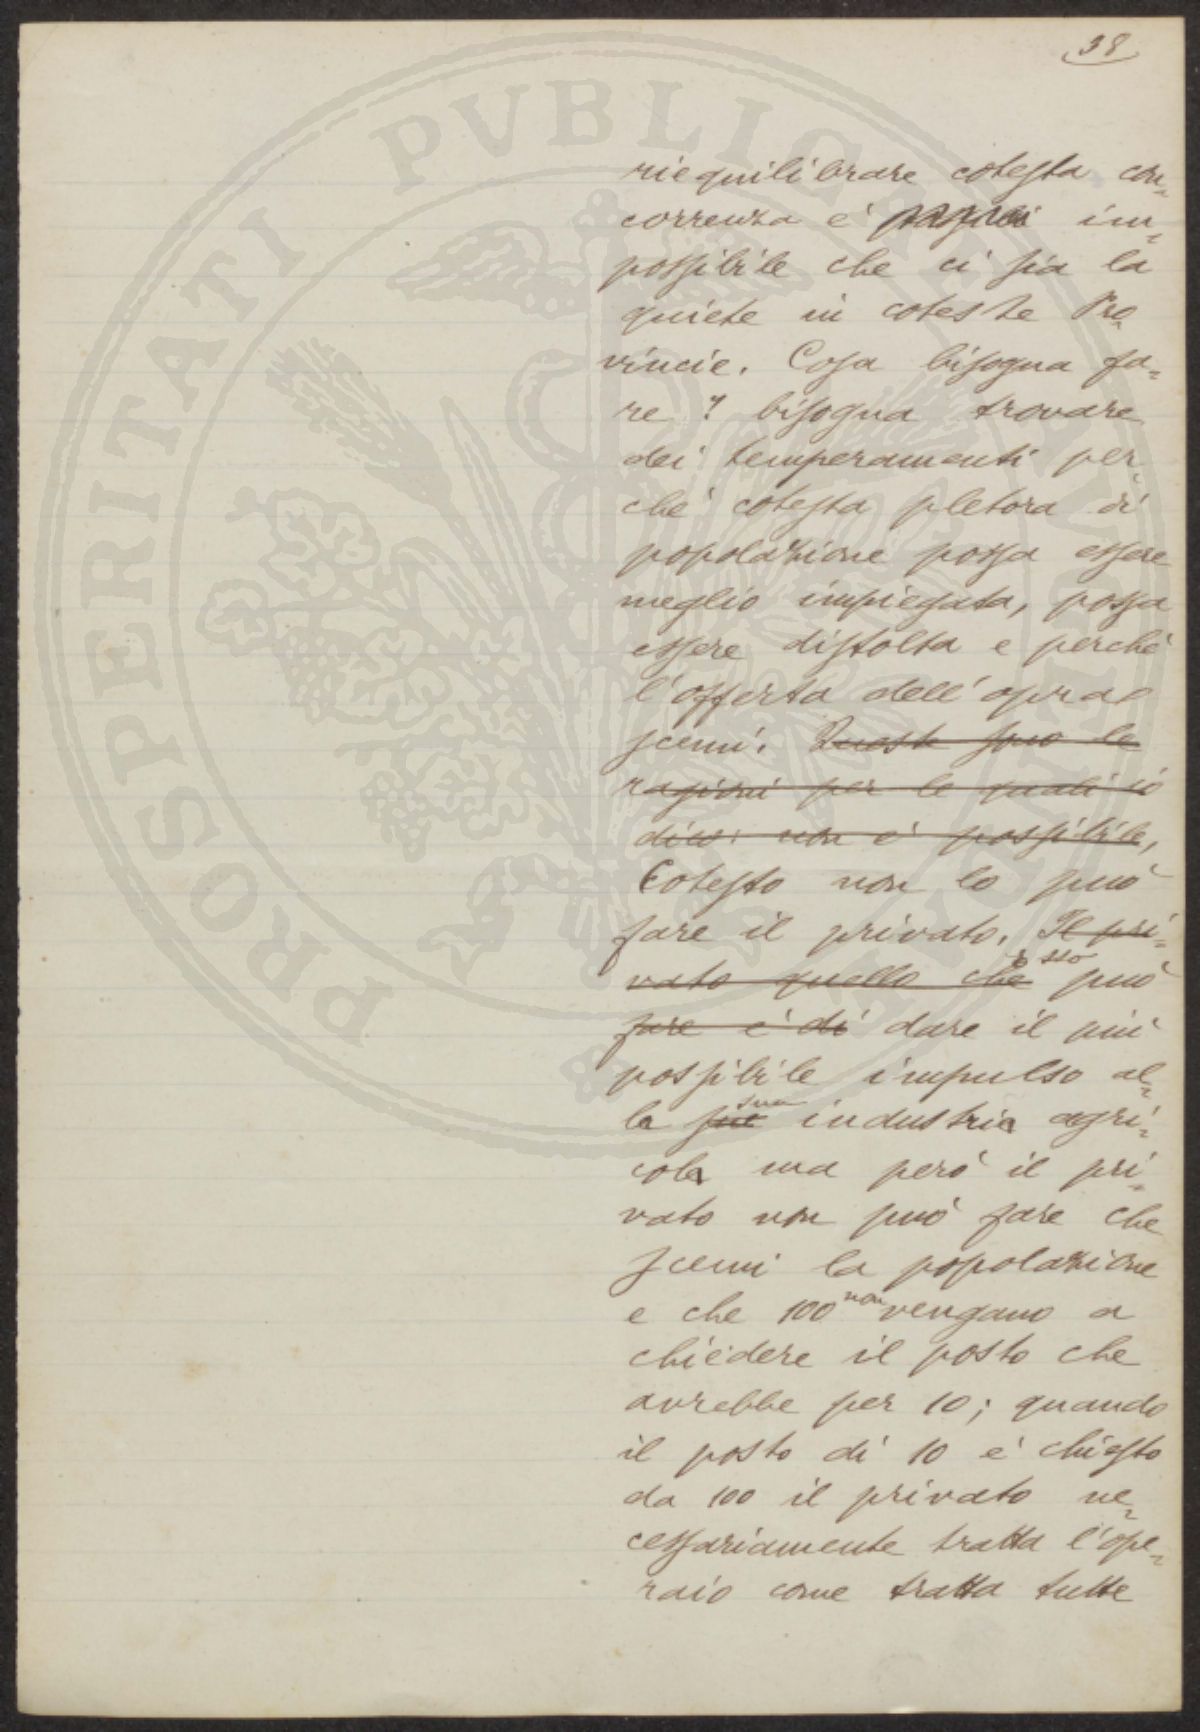 38
riequilibrare cotesta con=
correnza è quasi im=
possibile che ci sia la
quiete in coteste Pro=
vincie. Cosa bisogna fa=
re? bisogna trovare
dei temperamenti per=
chè cotesta pletora di
popolazione possa essere
meglio impiegata, possa
essere distolta e perchè
l'offerta dell'opra
scemi. Queste sono le
ragioni per le quali io
dico: non è possibile,
Cotesto non lo può
fare il privato. Il pri=
vato quello che Esso può
fare è di dare il più
possibile impulso al=
la sue sua industria agri=
cola ma però il pri=
vato non può fare che
scemi la popolazione
e che 100 non vengano a
chiedere il posto che
avrebbe per 10; quando
il posto di 10 è chiesto
da 100 il privato ne=
cessariamente tratta l'ope=
raio come tratta tutte
PROSPERITATI PVBLICAE